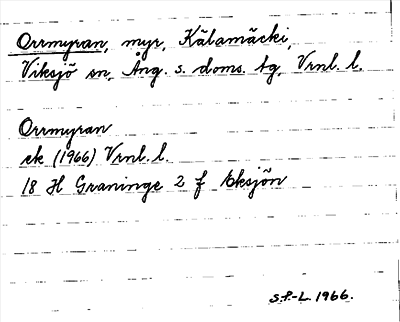 Orrmyran, myr, Kälamäcki,
Viksjö sn, Ång. s. doms. tg, Vrnl. l.
Orrmyran
ek (1966) Vrnl. l.
18 H Graninge 2 f Eksjön
S.P.-L. 1966.